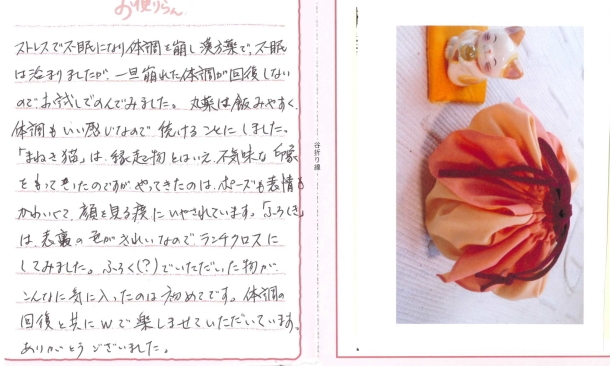 お便りらん
ストレスで不眠になり体調を崩し漢方薬で、不眠
は治まりましたが、一旦崩れた体調が回復しない
のでお試しでのんでみました。丸薬は飲みやすく、
体調もいい感じなので続けることにしました。
「まねき猫」は、縁起物とはいえ不気味な印象
をもっていたのですがやってきたのは、ポーズも表情も
かわいくて、顔を見る度にいやされています。「ふろしき」
は、表裏の色がきれいなのでランチクロスに
してみました。ふろく(?)でいただいた物が
こんなに気に入ったのは初めてです。体調の
回復と共にWで楽しませていただいています。
ありがとうございました。
谷折り線